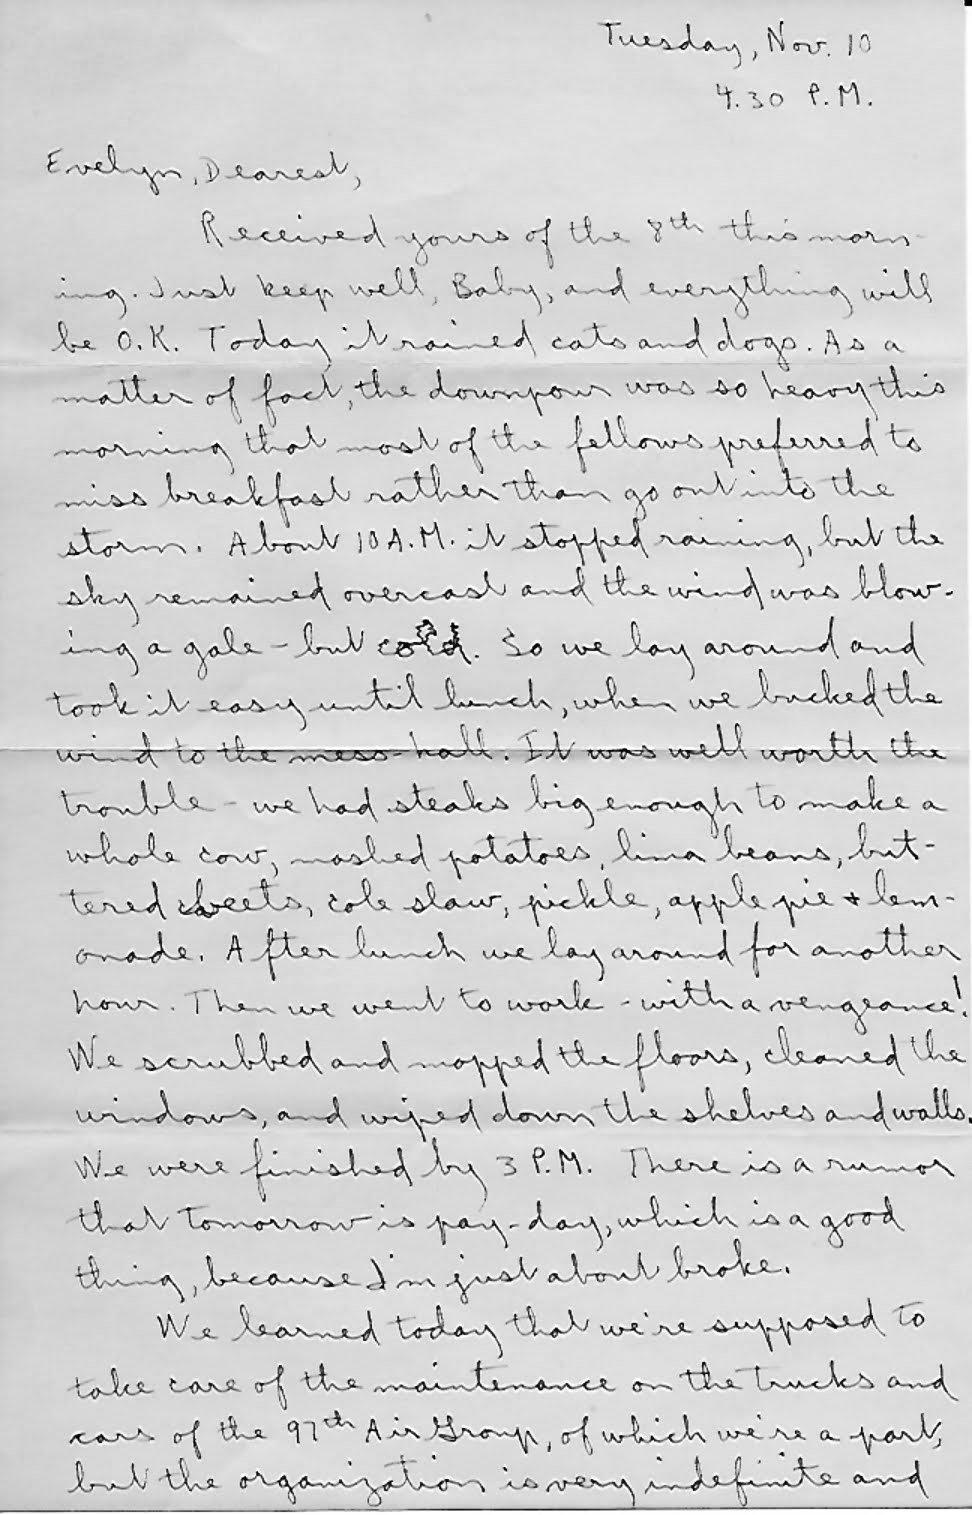 Tuesday, Nov. 10
4.30 P.M.
Evelyn, Dearest,
Received yours of the 8th this morn-
ing. Just keep well, Baby, and everything will
be O.K. Today it rained cats and dogs. As a
matter of fact, the downpour was so heavy this
morning that most of the fellows preferred to
miss breakfast rather than go out into the
storm. About 10 A.M. it stopped raining, but the
sky remained overcast and the wind was blow-
ing a gale - but cold. So we lay around and
took it easy until lunch, when we bucked the
wind to the mess-hall. It was well worth the
trouble - we had steaks big enough to make a
whole cow, mashed potatoes, lima beans, but-
tered beets, cole slaw, pickle, apple pie + lem-
onade. After lunch we lay around for another
hour. Then we went to work - with a vengeance!
We scrubbed and mopped the floors, cleaned the
windows, and wiped down the shelves and walls.
We were finished by 3 P.M. There is a rumor
that tomorrow is pay-day, which is a good
thing, because I'm just about broke.
We learned today that we're supposed to
take care of the maintenance on the trucks and
cars of the 97th Air Group, of which we're a part,
but the organization is very indefinite and